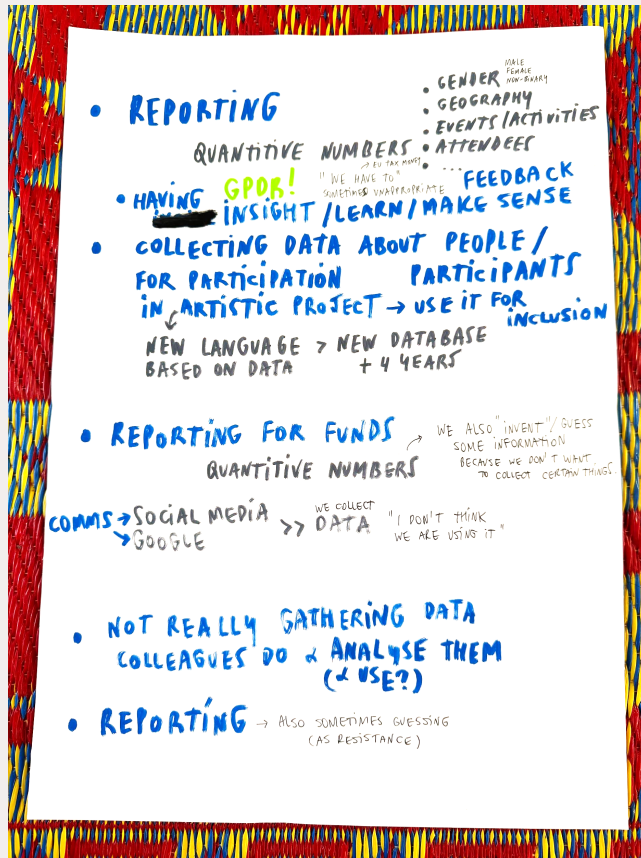 • REPORTING
QUANTITIVE NUMBERS
• GENDER MALE
FEMALE
NON-BINARY
• GEOGRAPHY
• EVENTS/ACTIVITIES
• ATTENDEES
• ...
→ EU TAX MONEY
"WE HAVE TO"
SOMETIMES UNAPROPRIATE
GPDR!
FEEDBACK
• HAVING
INSIGHT/LEARN/MAKE SENSE
• COLLECTING DATA ABOUT PEOPLE/
PARTICIPANTS
FOR PARTICIPATION
IN ARTISTIC PROJECT → USE IT FOR
INCLUSION
NEW LANGUAGE > NEW DATABASE
BASED ON DATA + 4 YEARS
• REPORTING FOR FUNDS
QUANTITIVE NUMBERS
WE ALSO "INVENT"/GUESS
SOME INFORMATION
BECAUSE WE DON'T WANT
TO COLLECT CERTAIN THINGS.
COMMS → SOCIAL MEDIA
→ GOOGLE
>> WE COLLECT
DATA
"I DON'T THINK
WE ARE USING IT"
• NOT REALLY GATHERING DATA
COLLEAGUES DO & ANALYSE THEM
(& USE?)
• REPORTING → ALSO SOMETIMES GUESSING
(AS RESISTANCE)